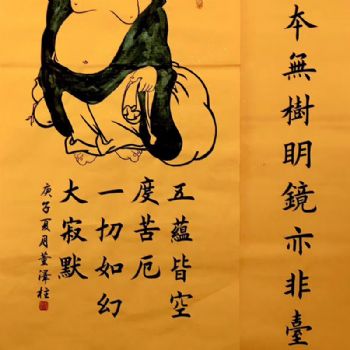 本無樹明鏡亦非臺
五蘊皆空
度苦厄
一切如幻
大寂默
庚子夏月董澤柱